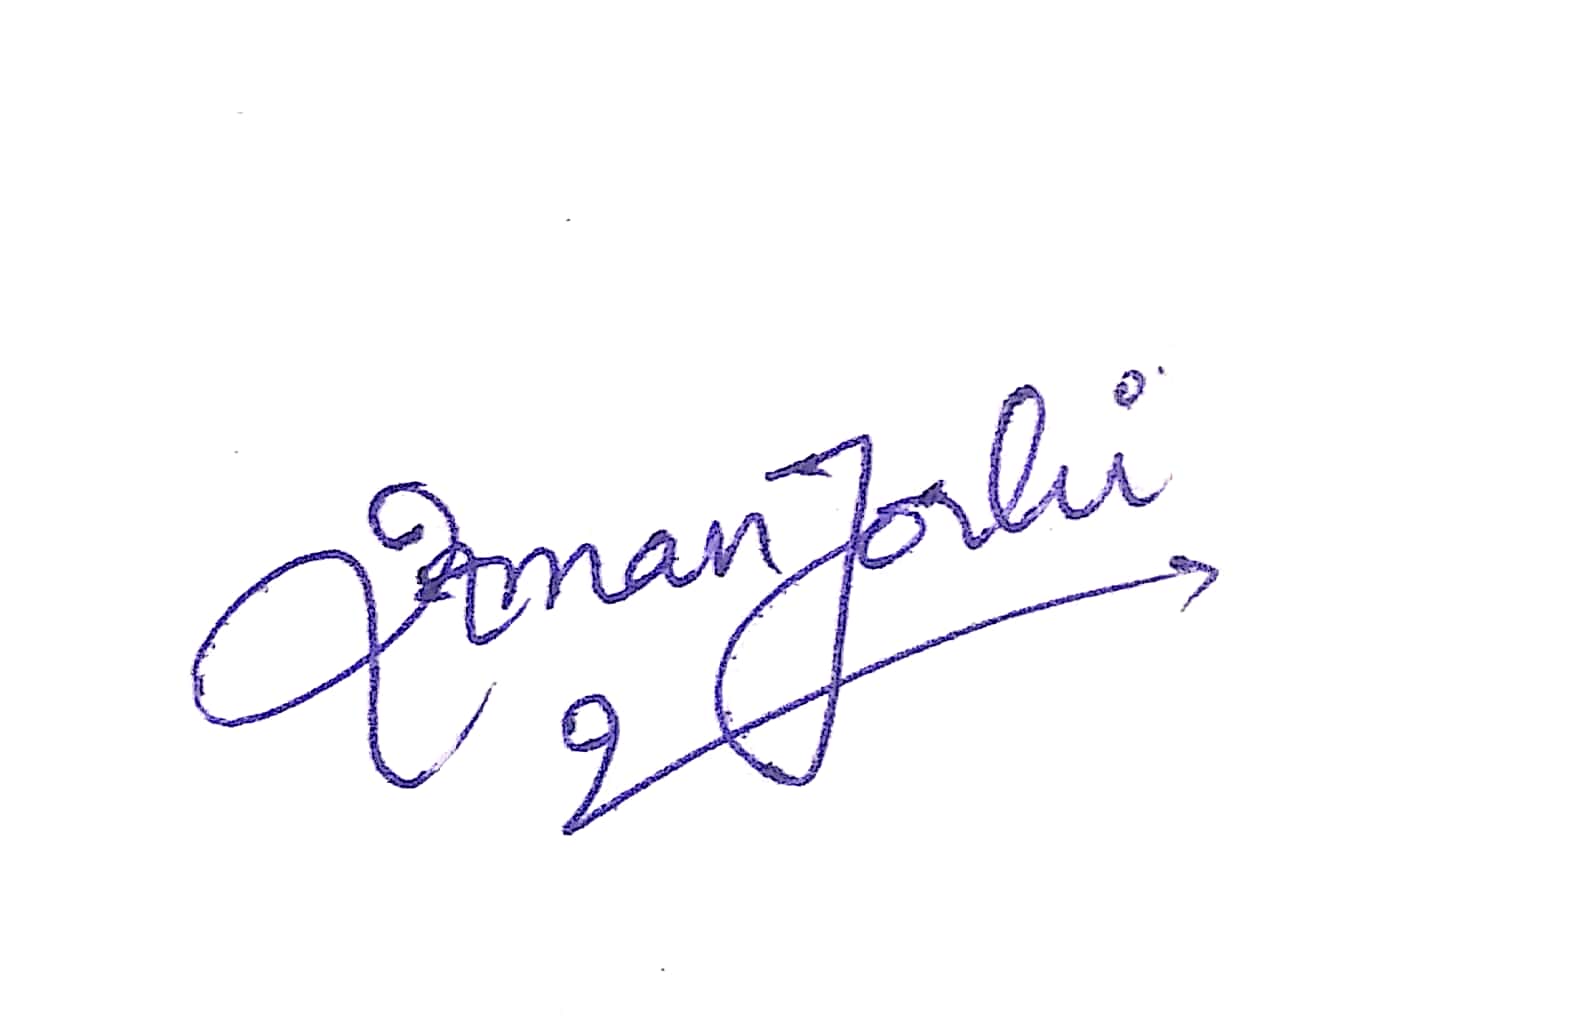 Aman Joshi